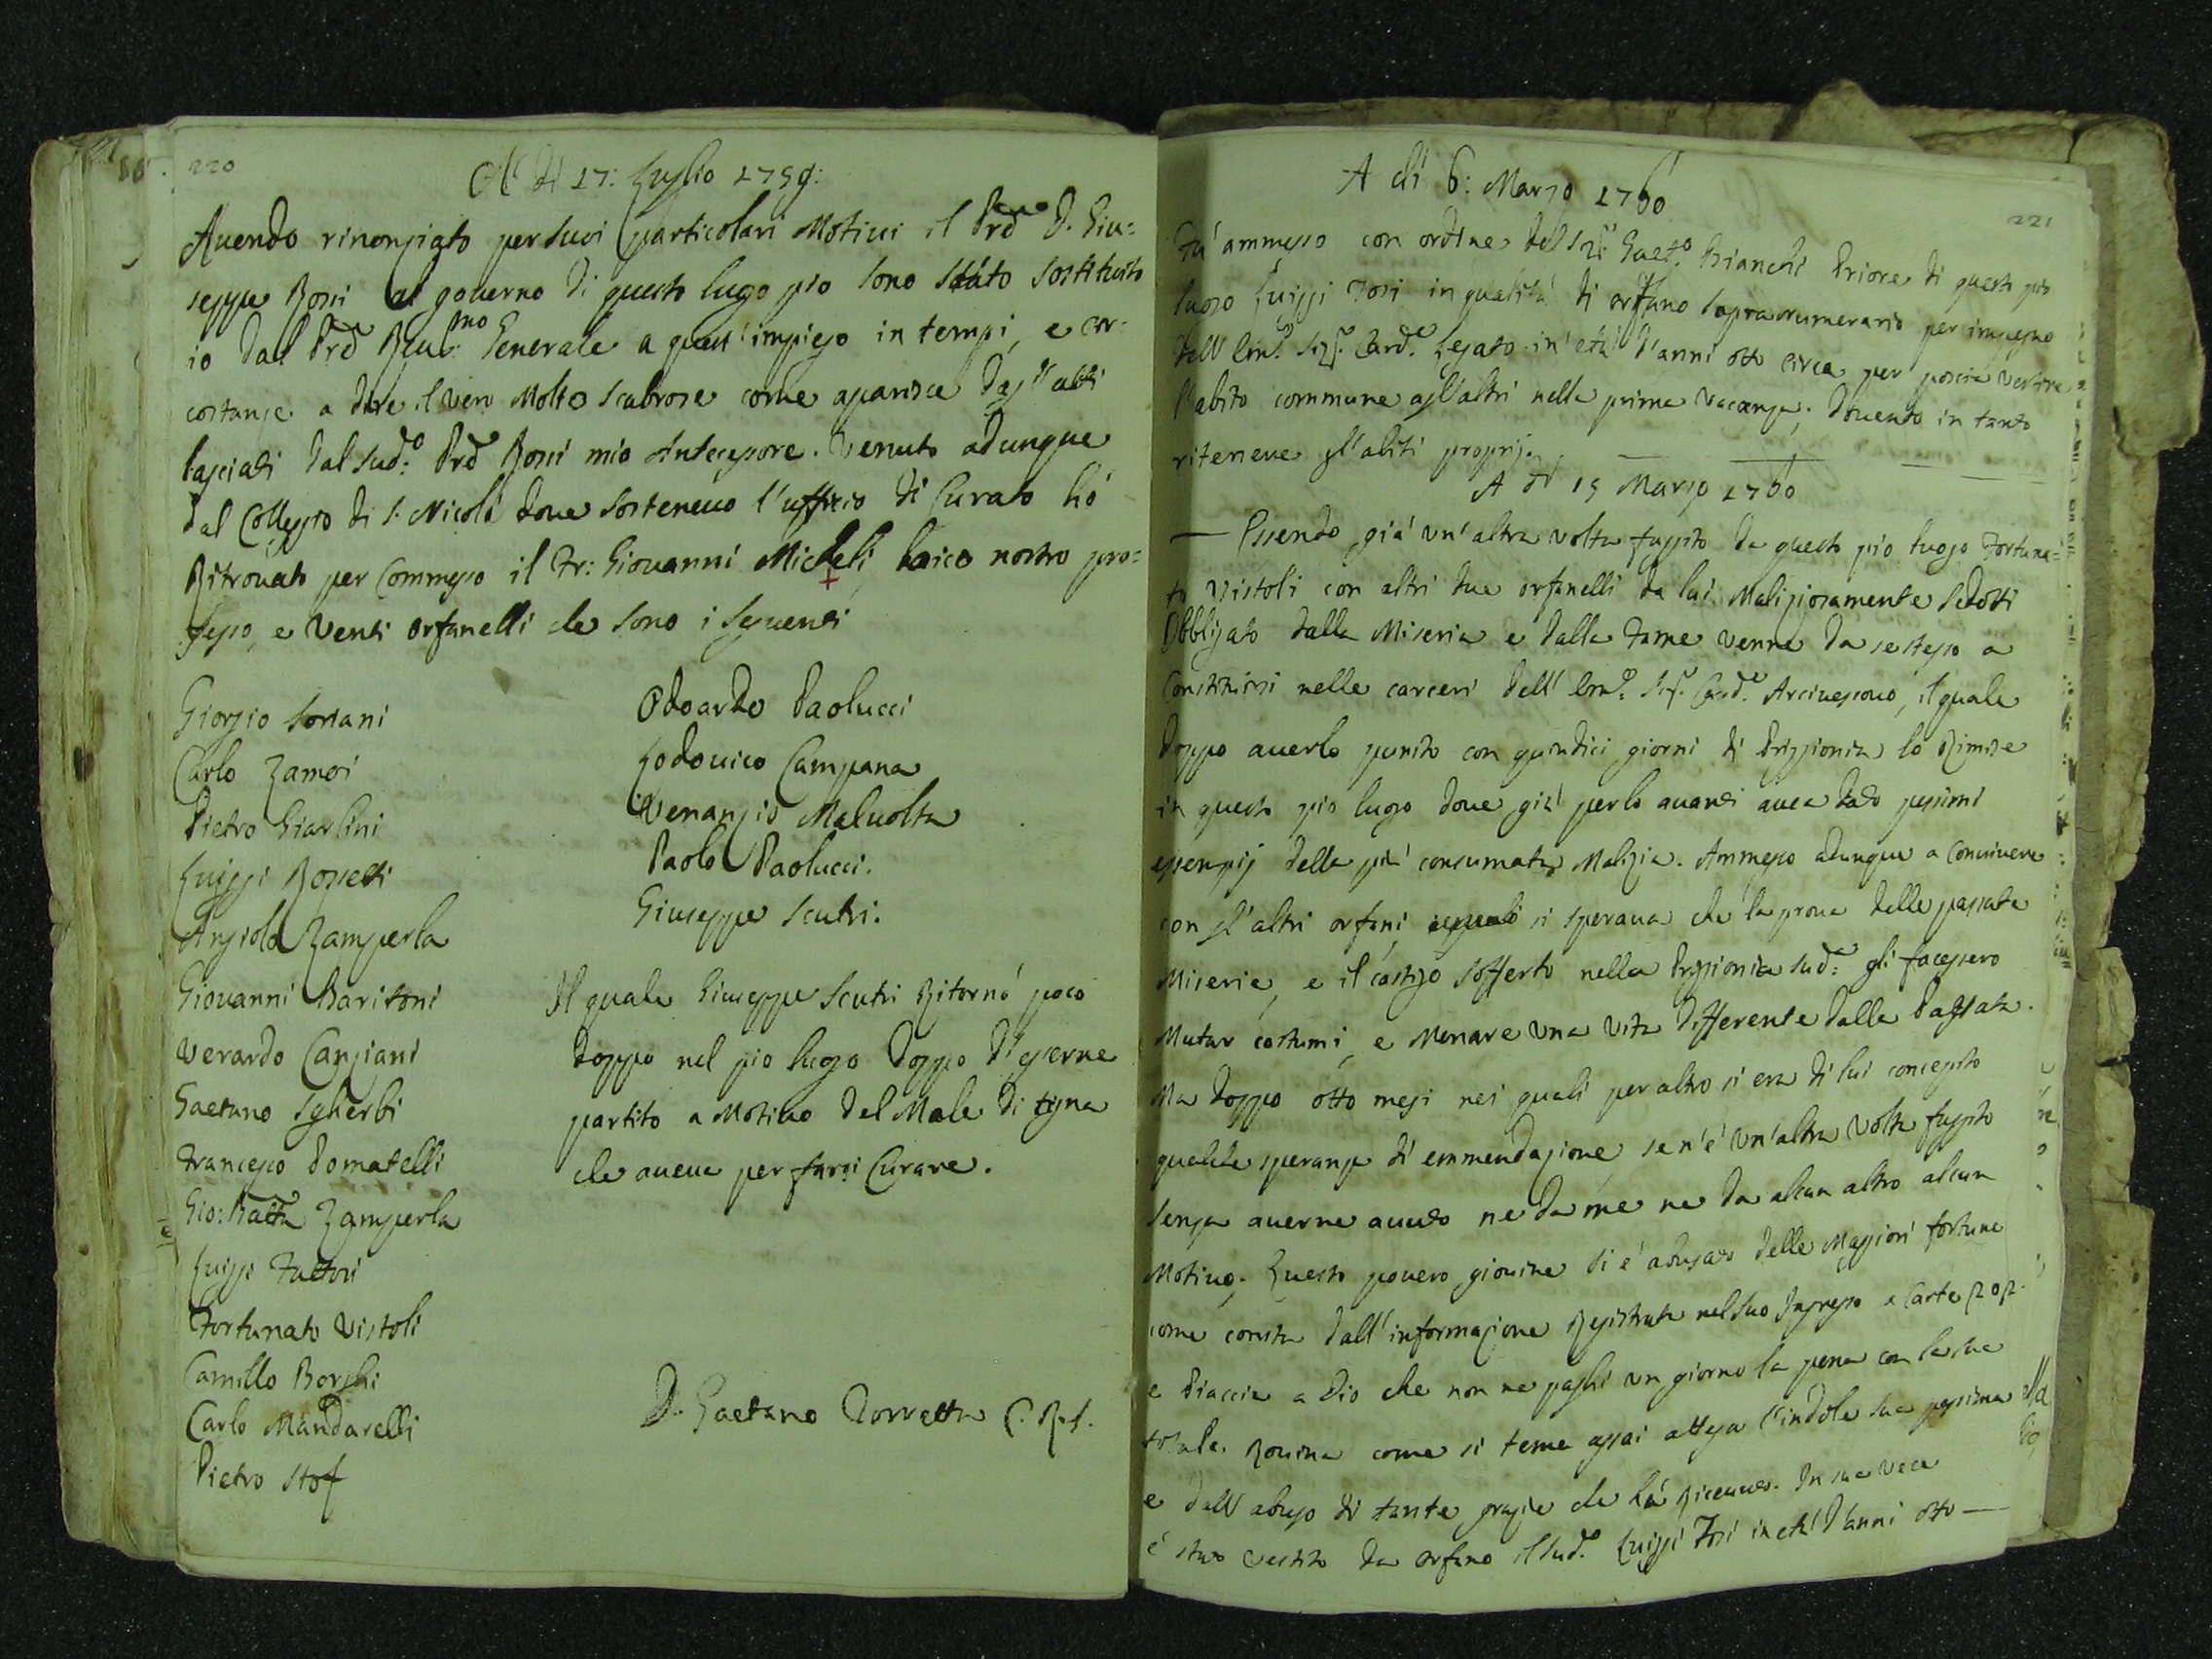 220
A dì 17: Luglio 1759:
Avendo rinonziato per suoi particolari Motivi il Prê D. Giu=
seppe Rossi al governo di questo lugo pio sono stato sostituito
io dal Prê Rev:mo Generale a quest'impiego in tempi, e cir-
costanze a dire il vero Molto scabrose come aparisce dagl'atti
lasciati dal sud:o Prê Rossi mio Antecessore. Venuto adunque
dal Colleggio di S. Nicolà dove sostenevo l'uffizio di Curato hò
Ritrovato per Commesso il Fr: Giovanni Micheli, laico nostro pro=
fesso, e Venti orfanelli che sono i seguenti
Giorgio Soriani
Carlo Zamori
Pietro Giarlini
Luiggi Rossetti
Angiolo Zamperla
Giovanni Baritoni
Verardo Canziani
Gaetano Sgherbi
Francesco Domatelli
Gio: Batta Zamperla
Luiggi Fattori
Fortunato Vistoli
Camillo Borghi
Carlo Mandarelli
Pietro Stof
Odoardo Paolucci
Lodovico Campana
Venanzio Malvolta
Paolo Paolucci.
Giuseppe Scutri.
Il quale Giuseppe Scutri Ritornó poco
doppo nel pio lugo doppo d'esserne
partito a Motivo del Male di tigna
che aveva per farsi Curare.
D. Gaetano Torretta C. R. S.
221
A dì 6: Marzo 1760
Fu' ammesso con ordine del Sig: Gaet:o Bianchi Priore di questo pio
luogo Luiggi Tosi in qualità di orfano sopranumerario per impegno
dell' Em:o Sig:r Card:e Legato in' età d'anni otto circa per poscia vestire
l'abito commune agl'altri nella prima vacanza; dovendo in tanto
ritenere gl'abiti proprij.
A dì 15 Marzo 1760
— Essendo già un'altra volta fuggito da questo pio luogo Fortuna=
to Vistoli con altri due orfanelli da lui Maliziosamente sedotti
Obbligato dalla Miseria e dalla Fame venne da se stesso a
Constituirsi nelle carceri dell' Em:o Sig:r Card:e Arcivescovo, il quale
doppo averlo punito con quindici giorni di Priggionia lo Rimise
in questo pio lugo dove già per lo avanti avea dato pessimi
essempij della più consumata Malizia. Ammesso adunque a convivere
con gl'altri orfani si sperava che la prova delle passate
Miserie, e il castigo sofferto nella Priggionia sud:a gli facessero
Mutar costumi, e Menare una vita differente dalla Passata.
Ma doppo otto mesi nei quali per altro si era di lui concepito
qualche speranza di emmendazione se n'è un'altra volta fuggito
senza averne avuto ne da me ne da alcun altro alcun
Motivo. Questo povero giovine si è abusato delle Maggiori fortune
come consta dall'informazione Registrata nel suo Ingresso a Carte 202.
e Piaccia a Dio che non ne paghi un giorno la pena con la sua
totale Rovina come si teme assai attesa l'indole sua pessima
e dall'abuso di tante grazie che hà Ricevuto. In sua vece
è stato vestito da orfano il sud:o Luiggi Tosi in età d'anni otto —